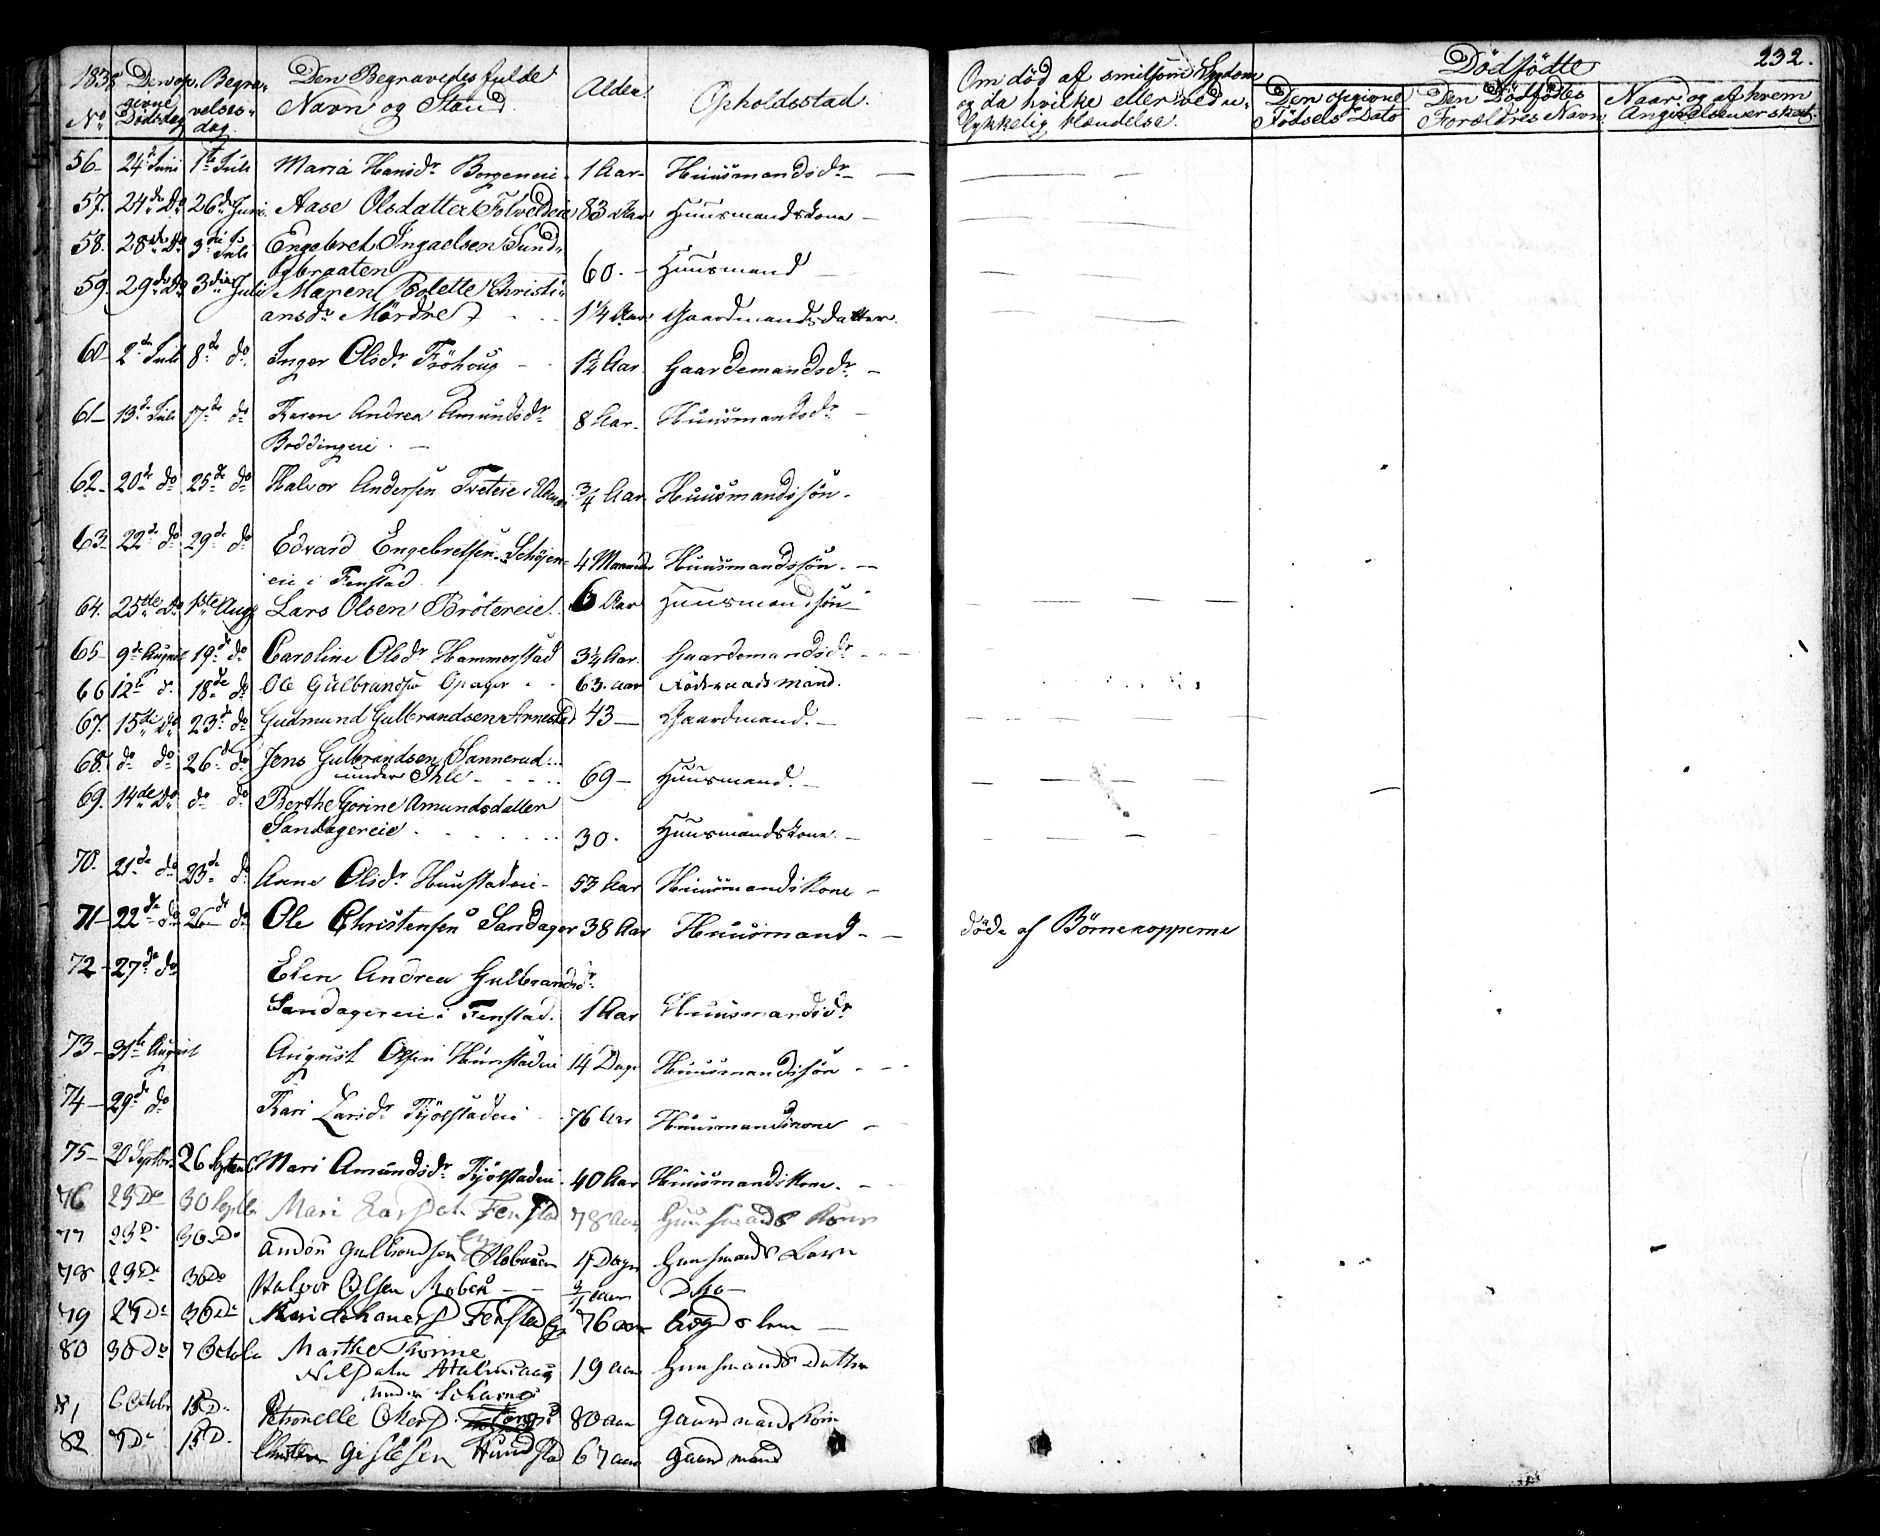 1838 Den op- Begra- Den Begravedes fulde Alder. Opholdsstad. Om död af smitsom Sygdom Dödfödte 232.
No givne Dødsdag velses-dag. Navn og Stand og da hvilke eller ved u-lykkelig Hændelse. Den opgivne Födsels Dato Den Dödfödtes Forældres Navn Naar og af hvem Angivelsen er skeet.
56 24de Juni 1ste Juli Maria Hansdr Borgeneie 1 Aar Huusmandsdr
57. 24de Do 26de Juni Aase Olsdatter Folveldeie 83 Aar Huusmandskone
58. 28de Do 3die Juli Engebret Ingaelsen Sund-
bybraaten 60. Huusmand
59. 29de Do 3die Juli Maren Bolette Christi-
ansdr Mördre 1 1/4 Aar Gaardmandsdatter.
60 2de Juli 8de do Inger Olsdr Fröhoug 1 1/2 Aar Gaardemandsdr.
61 13de Juli 17de do Karen Andrea Amundsdr
Boddingeie 8 Aar Huusmandsdr
62 20de do 25de do Halvor Andersen Tveteie 3/4 Aar Huusmandssön
63 22de do 29de do Edvard Engebretsen Schöjen-
eie i Fenstad 4 Maaneder Huusmandssön
64. 25de Do 1ste Aug Lars Olsen Brötereie 6 Aar Huusmandssön
65 9de August 19de do Caroline Olsdr Hammerstad 3 1/4 Aar Gaardemandsdr
66 12te d. 18de do Ole Gulbrandsen Opager 63. aar Föderaads mand.
67. 15de Do 23de do Gudmund Gulbrandsen Arnestad 43 Gaardmand.
68. do do 26de do Jens Gulbrandsen Sannerud
under Ihle 69 Huusmand.
69. 14de Do do do Berthe Gorine Amundsdatter
Sandagereie 30. Huusmandskone
70. 21de do 23de do Anne Olsdr Hunstadeie 53 Aar Huusmandskone
71 22de do 26de do Ole Christensen Sandager 38 Aar Huusmand döde af Börnekopperne
72 27de do Elen Andrea Gulbrandsdr
Sandagereie i Fenstad. 1 Aar Huusmandsdr
73 31te August August Olsen Hunstadeie 14 Dage Huusmandssön
74 29de do Kari Larsdr Kjölstadeie 76 Aar Huusmandskone
75 20 Septbr 26 Septemb Mari Amundsdr Kjölstadeie 40 Aar Huusmandskone.
76 23 Do 30 Septbr Mari Larsdatr Fenstad 78 Aar Huusmands kone
77 23 Do 30 Do Andon Gulbrandsen 4 Dage Huusmands Barn
78 29 Do 30 Do Halvor Olsen 3/4 Aar Dito
79 29 Do 30 Do Fenstad 76 aar lem
80 30 Do 7 Octobr Marthe Torine
Nilsdatr
under 19 aar Huusmands Datter
81 6 Octobr 15 Do Petronelle 80 aar Gaardmandskone
82 7 Do 15 D. Christen Gislesen Hundstad 67 aar gaardmand